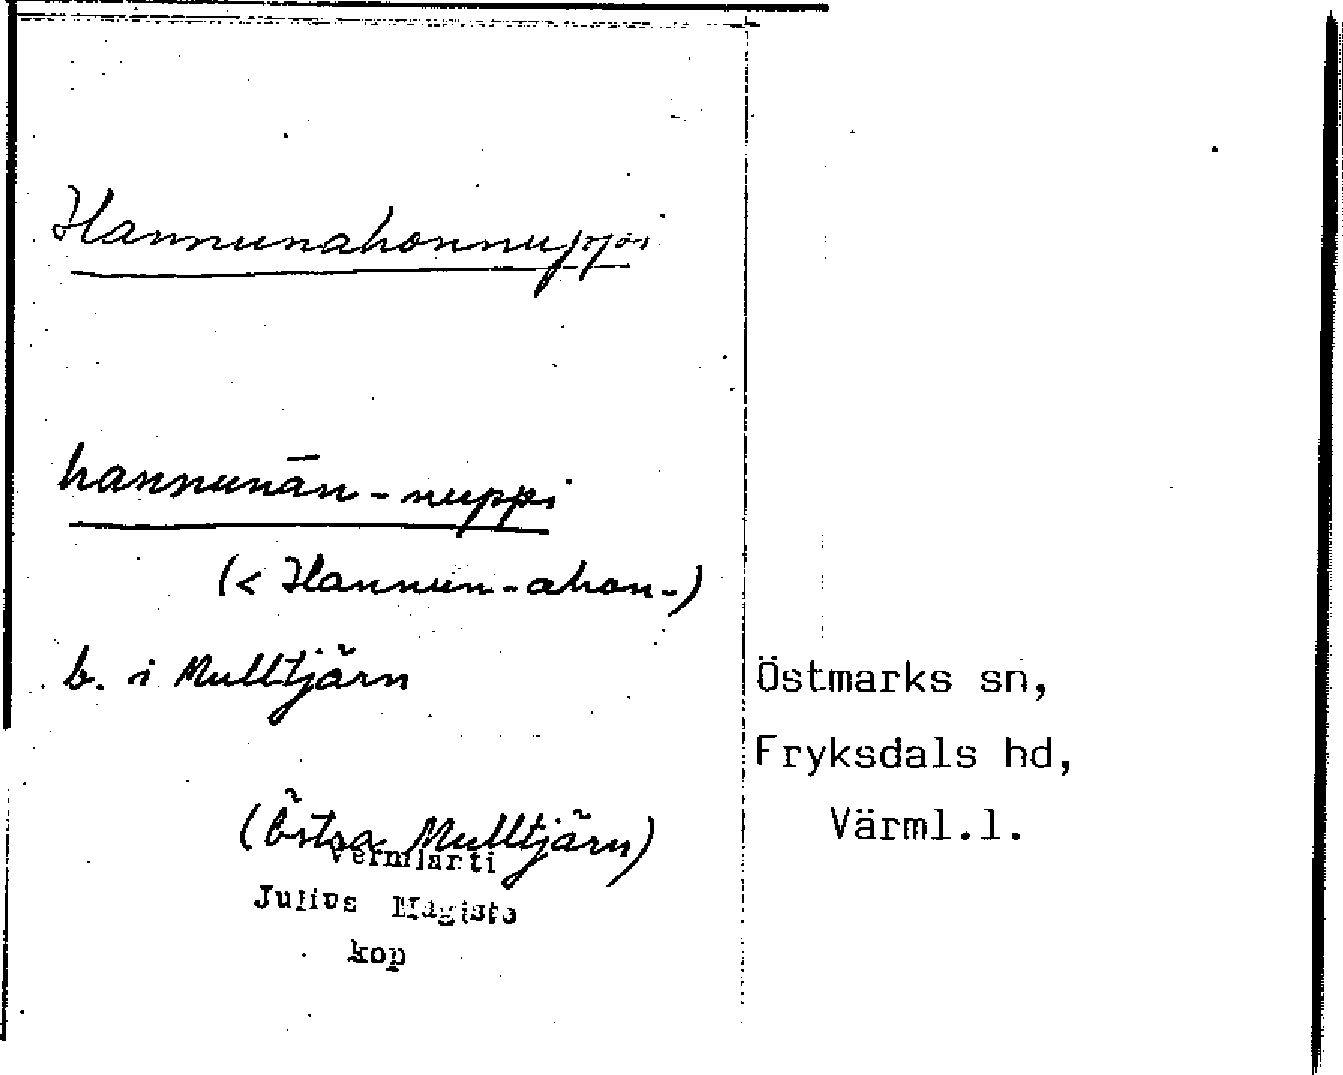 Hannunahonnuppi
hannunān-nuppi
(< Hannun-ahon-)
b. i Mulltjärn
Östmarks sn,
Fryksdals hd,
Värml.l.
(Östra Mulltjärn)
Vermlanti
Julius Mägiste
kop